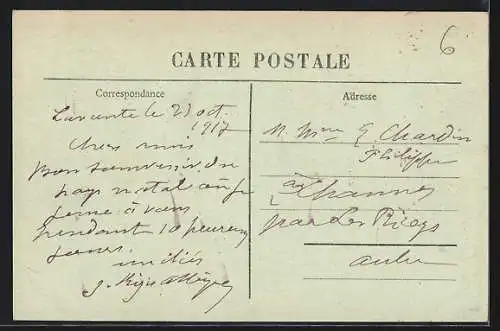 6
CARTE POSTALE
Correspondance
le 21 oct
1917
Chers amis
Bon souvenir du
pays natal
à vous
pendant 10 heureux
jours.
amitiés
Adresse
M. Mme G Chardin
Philippe
à Channes
par Les Riceys
aube